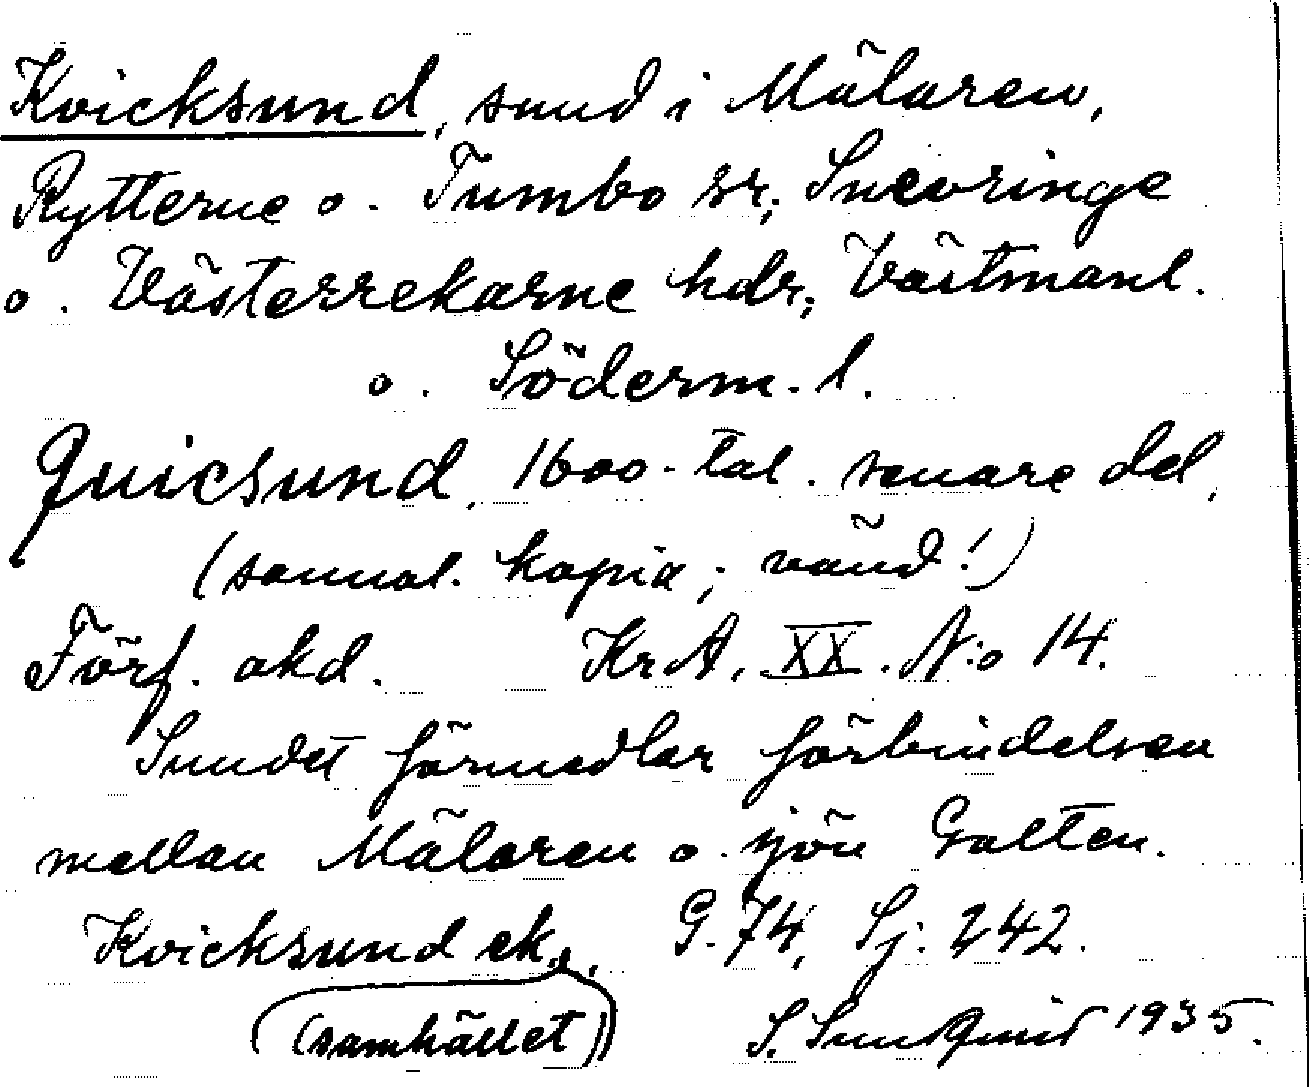 Kvicksund, sund i Mälaren,
Rytterne o. Tumbo sr, Snevringe
o. Västerrekarne hdr, Västmanl.
o. Söderm. l.
Quicsund, 1600-tal. senare del,
(samal. kopia; vänd!)
Förf. okd. KrA. XX. N:o 14.
Sundet förmedlar förbindelsen
mellan Mälaren o. sjön Galten.
Kvicksund ek., G. 74, Sj: 242.
(samhället) S. Sundquist 1935.